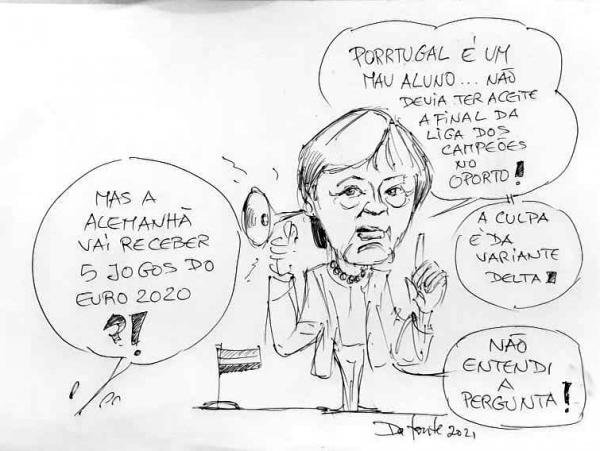 PORRTUGAL É UM
MAU ALUNO... NÃO
DEVIA TER ACEITE
A FINAL DA
LIGA DOS
CAMPEÕES
NO
OPORTO!
MAS A
ALEMANHÃ
VAI RECEBER
5 JOGOS DO
EURO 2020
?!
A CULPA
É DA
VARIANTE
DELTA!
NÃO
ENTENDI
A
PERGUNTA!
Da fonte 2021